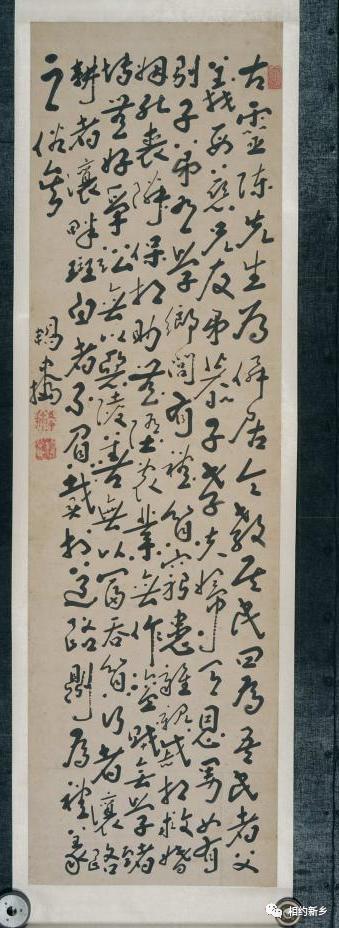 古靈陳先生為僊居令教其民曰為吾民者父
義母慈兄友弟恭子孝夫婦有恩男女有
別子弟有學鄉閭有禮貧窮患難親戚相救婚
姻死喪隣保相助無墮農業無作盜賊無學賭
博無好爭訟無以惡陵善無以富吞貧行者讓路
耕者讓畔斑白者不負戴於道路則為禮義
之俗矣
相约新乡